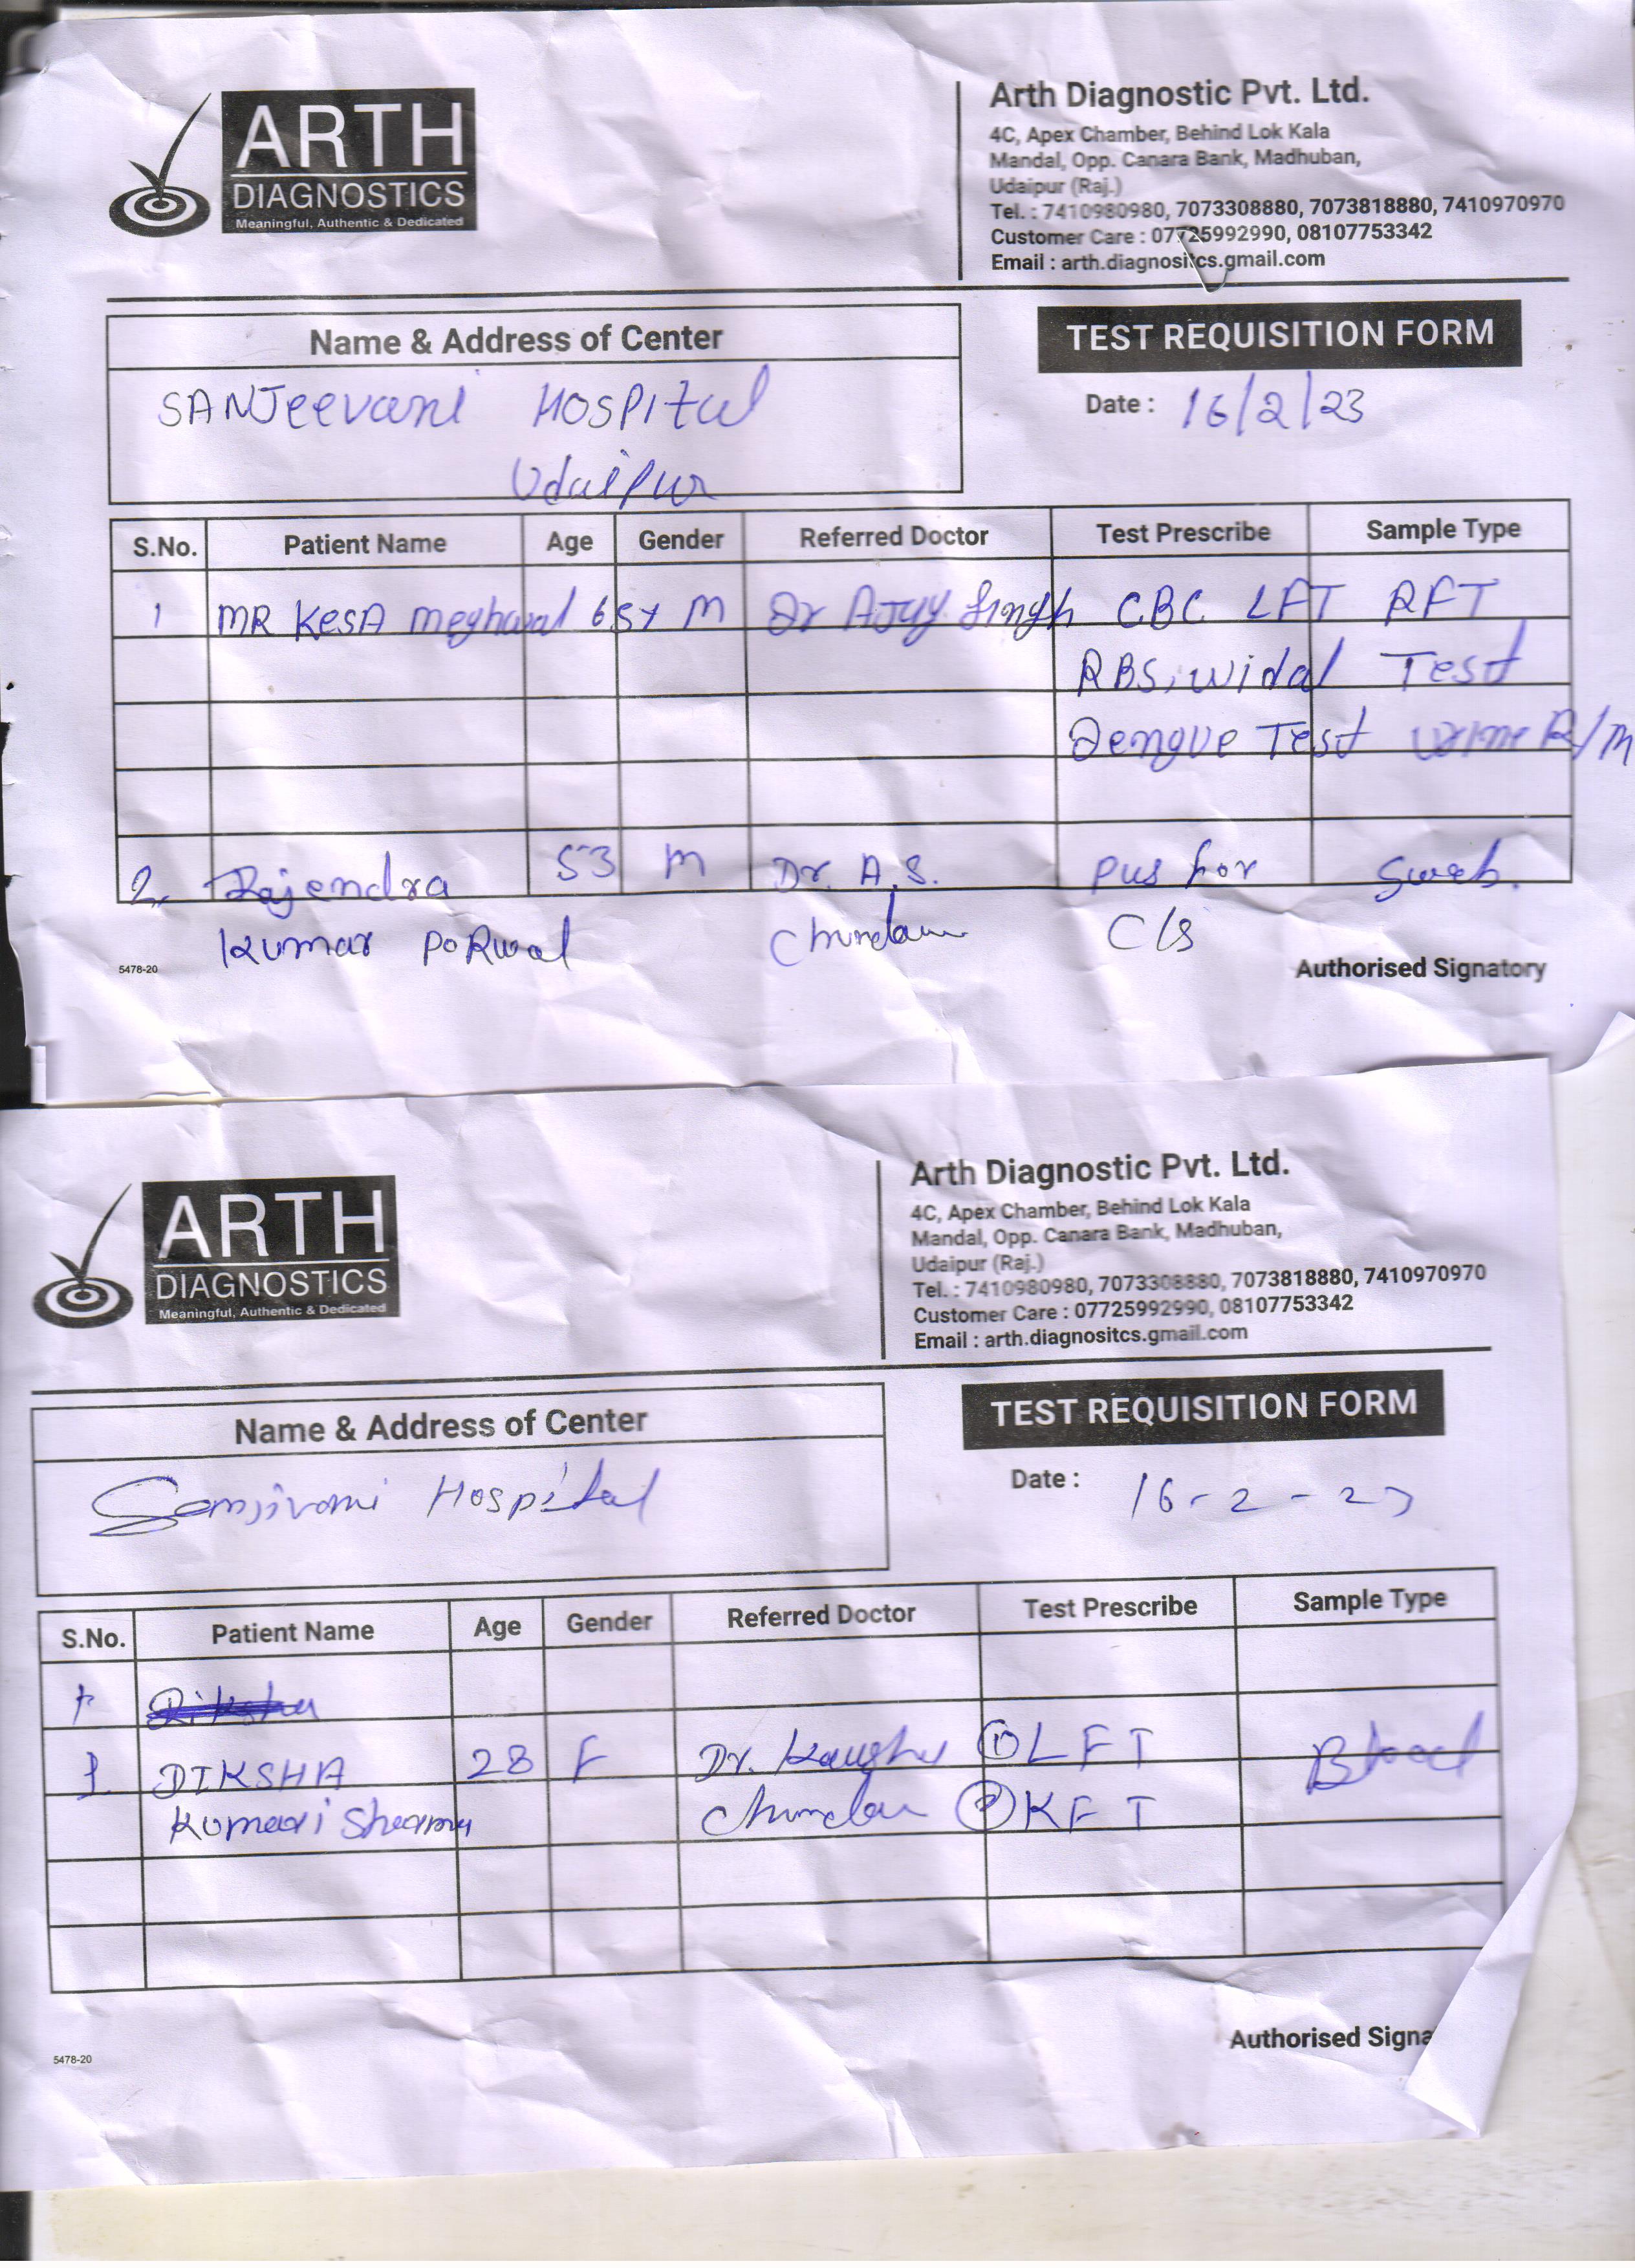 ARTH
DIAGNOSTICS
Meaningful, Authentic & Dedicated
Arth Diagnostic Pvt. Ltd.
4C, Apex Chamber, Behind Lok Kala
Mandal, Opp. Canara Bank, Madhuban,
Udaipur (Raj.)
Tel. : 7410980980, 7073308880, 7073818880, 7410970970
Customer Care : 07725992990, 08107753342
Email : arth.diagnositcs.gmail.com
Name & Address of Center
TEST REQUISITION FORM
SANJeevani HOSPItal
Udaipur
Date : 16/2/23
S.No. Patient Name Age Gender Referred Doctor Test Prescribe Sample Type
1 MR KesA meghwal 65y M Dr AJay Singh CBC LFT RFT
RBS, widal Test
Dengue Test urine R/M
2. Rajendra 53 M Dr. A.S. Pus for Swab.
Kumar PoRwal Chundawat C/S
5478-20
Authorised Signatory
ARTH
DIAGNOSTICS
Meaningful, Authentic & Dedicated
Arth Diagnostic Pvt. Ltd.
4C, Apex Chamber, Behind Lok Kala
Mandal, Opp. Canara Bank, Madhuban,
Udaipur (Raj.)
Tel. : 7410980980, 7073308880, 7073818880, 7410970970
Customer Care : 07725992990, 08107753342
Email : arth.diagnositcs.gmail.com
Name & Address of Center
TEST REQUISITION FORM
Sanjivani Hospital
Date : 16-2-23
S.No. Patient Name Age Gender Referred Doctor Test Prescribe Sample Type
1 Diksha
1. DIKSHA 28 F Dr. ① LFT Blood
Kumari Sharma ② KFT
5478-20
Authorised Signa